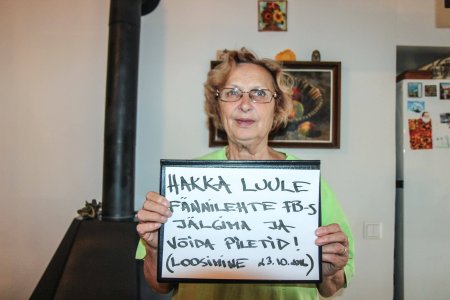 HAKKA LUULE
FÄNNILEHTE FB-S
JÄLGIMA JA
VÕIDA PILETID!
(LOOSIMINE 23.10.2016)